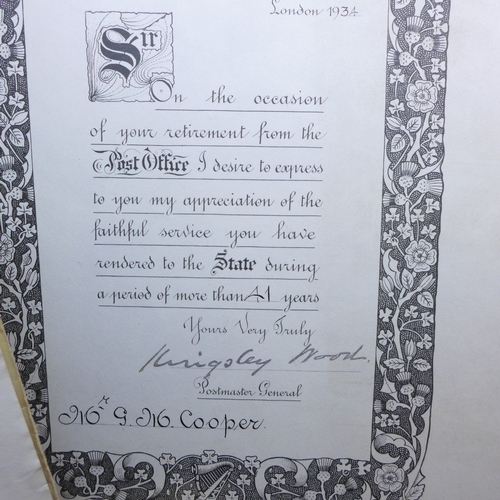 London 1934
Sir
On the occasion
of your retirement from the
Post Office I desire to express
to you my appreciation of the
faithful service you have
rendered to the State during
a period of more than 41 years
Yours Very Truly
Kingsley Wood.
Postmaster General
Mr G. M. Cooper.